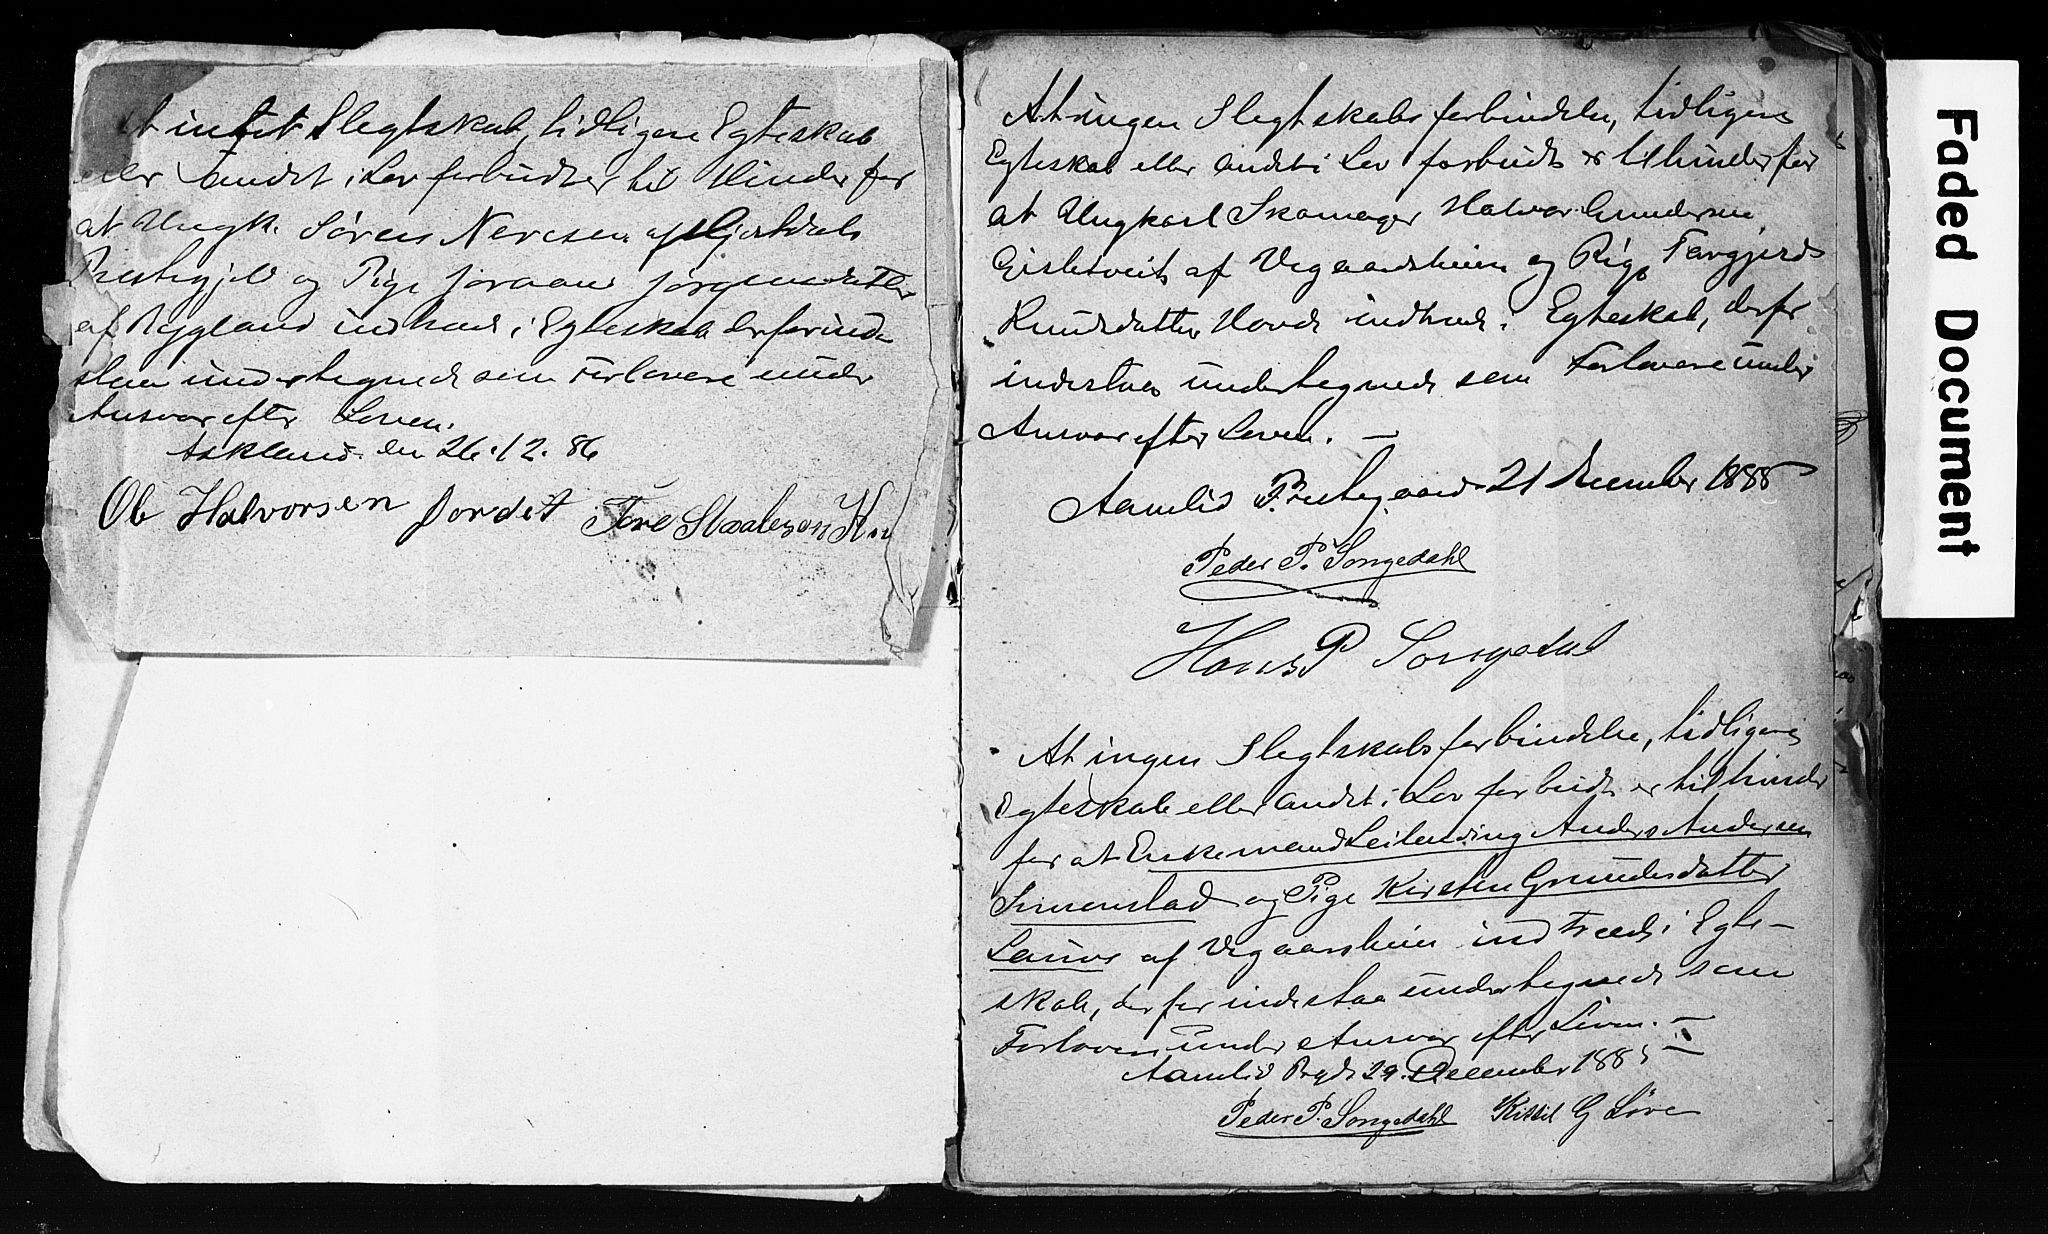 At intet Slegtskab, tidligere Egteskab
eller Andet i Lov forbudt er til Hinder for
at Ungk. Søren Nercsen af Hjertdals
Prestegjeld og Pige Joraand Jørgensdatter
af Rygland indtræde i Egteskab derfor inde-
staa undertegnede som Forlovere under
Ansvar efter Loven.
Askland den 26.12.86
Ole Halvorsen Jordet Tore Staalesen
At ingen Slegtskabsforbindelse, tidligere
Egteskab eller Andet i Lov forbudt er til hinder for
at Ungkarl Skomager Halvor Gundersen
Gisletveit af Vegaardsheien og Pige Torgjerd
Knudsdatter Hovde indtræde i Egteskab, derfor
indestaa undertegnede som Forlovere under
Ansvar efter Loven. —
Aamlid Prestegaard 21 December 1888
Peder P. Songedahl
Hans P Songedal
At ingen Slegtskabsforbindelse, tidligere
Egteskab eller Andet i Lov forbudt er til hinder
for at Enkemand Leilending Anders Andersen
Simenstad og Pige Kirsten Gundersdatter
Lauve af Vegaarsheien indtræde i Egte-
skab, derfor indestaa undertegnede som
Forlovere under Ansvar efter Loven. —
Aamlid Prgd. 29. December 1888 —
Peder P. Songedahl Kittil G Løve
Faded Document